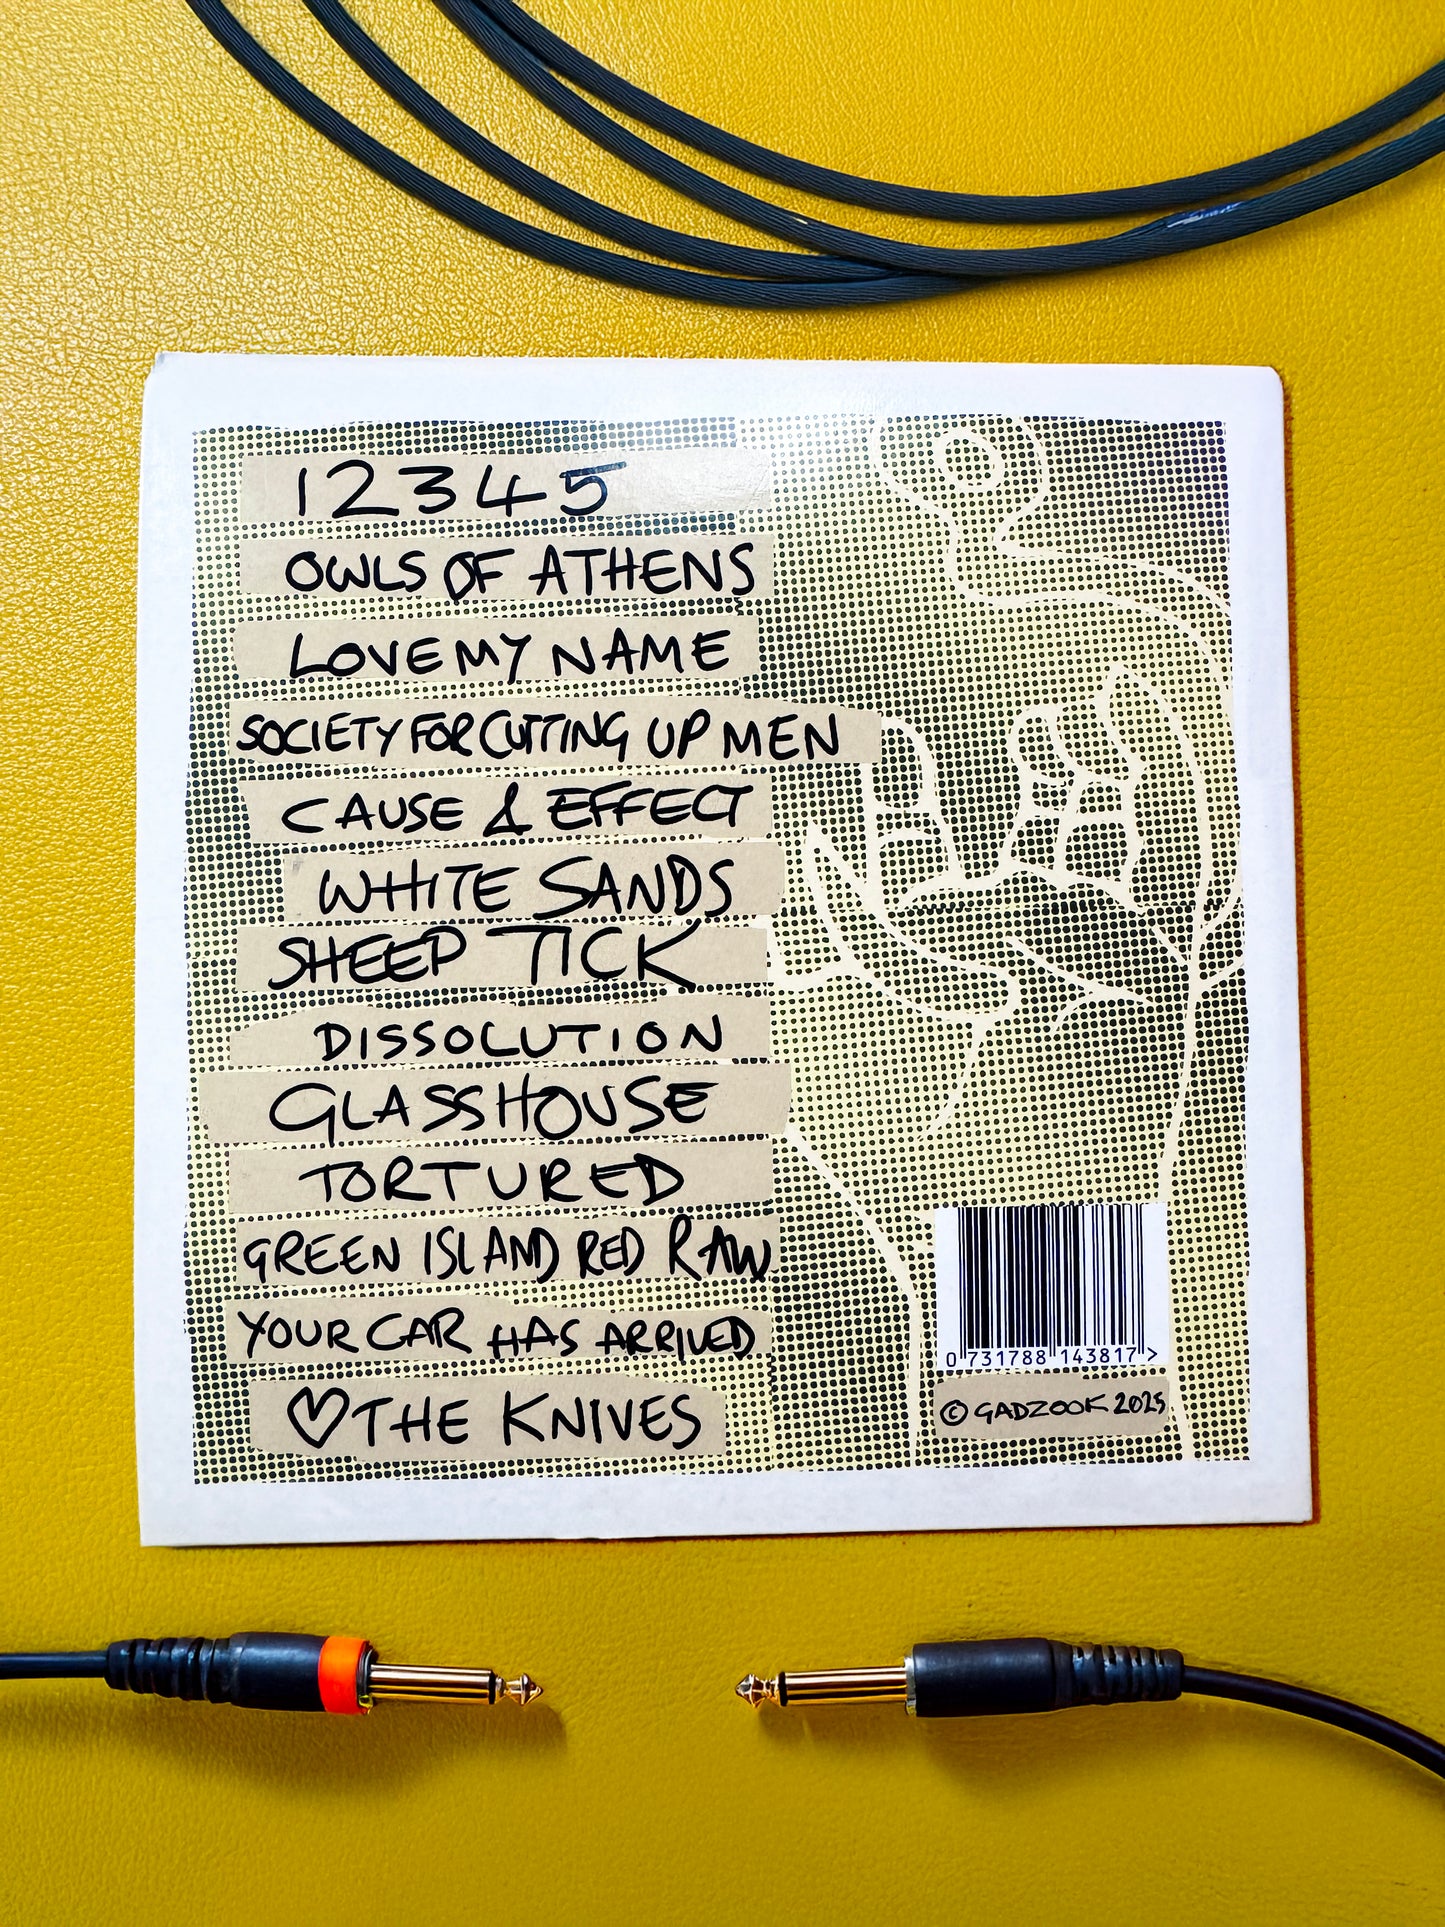 12345
OWLS OF ATHENS
LOVE MY NAME
SOCIETY FOR CUTTING UP MEN
CAUSE & EFFECT
WHITE SANDS
SHEEP TICK
DISSOLUTION
GLASSHOUSE
TORTURED
GREEN ISLAND RED RAW
YOUR CAR HAS ARRIVED
♡ THE KNIVES
0 731788 143817 >
© GADZOOK 2025